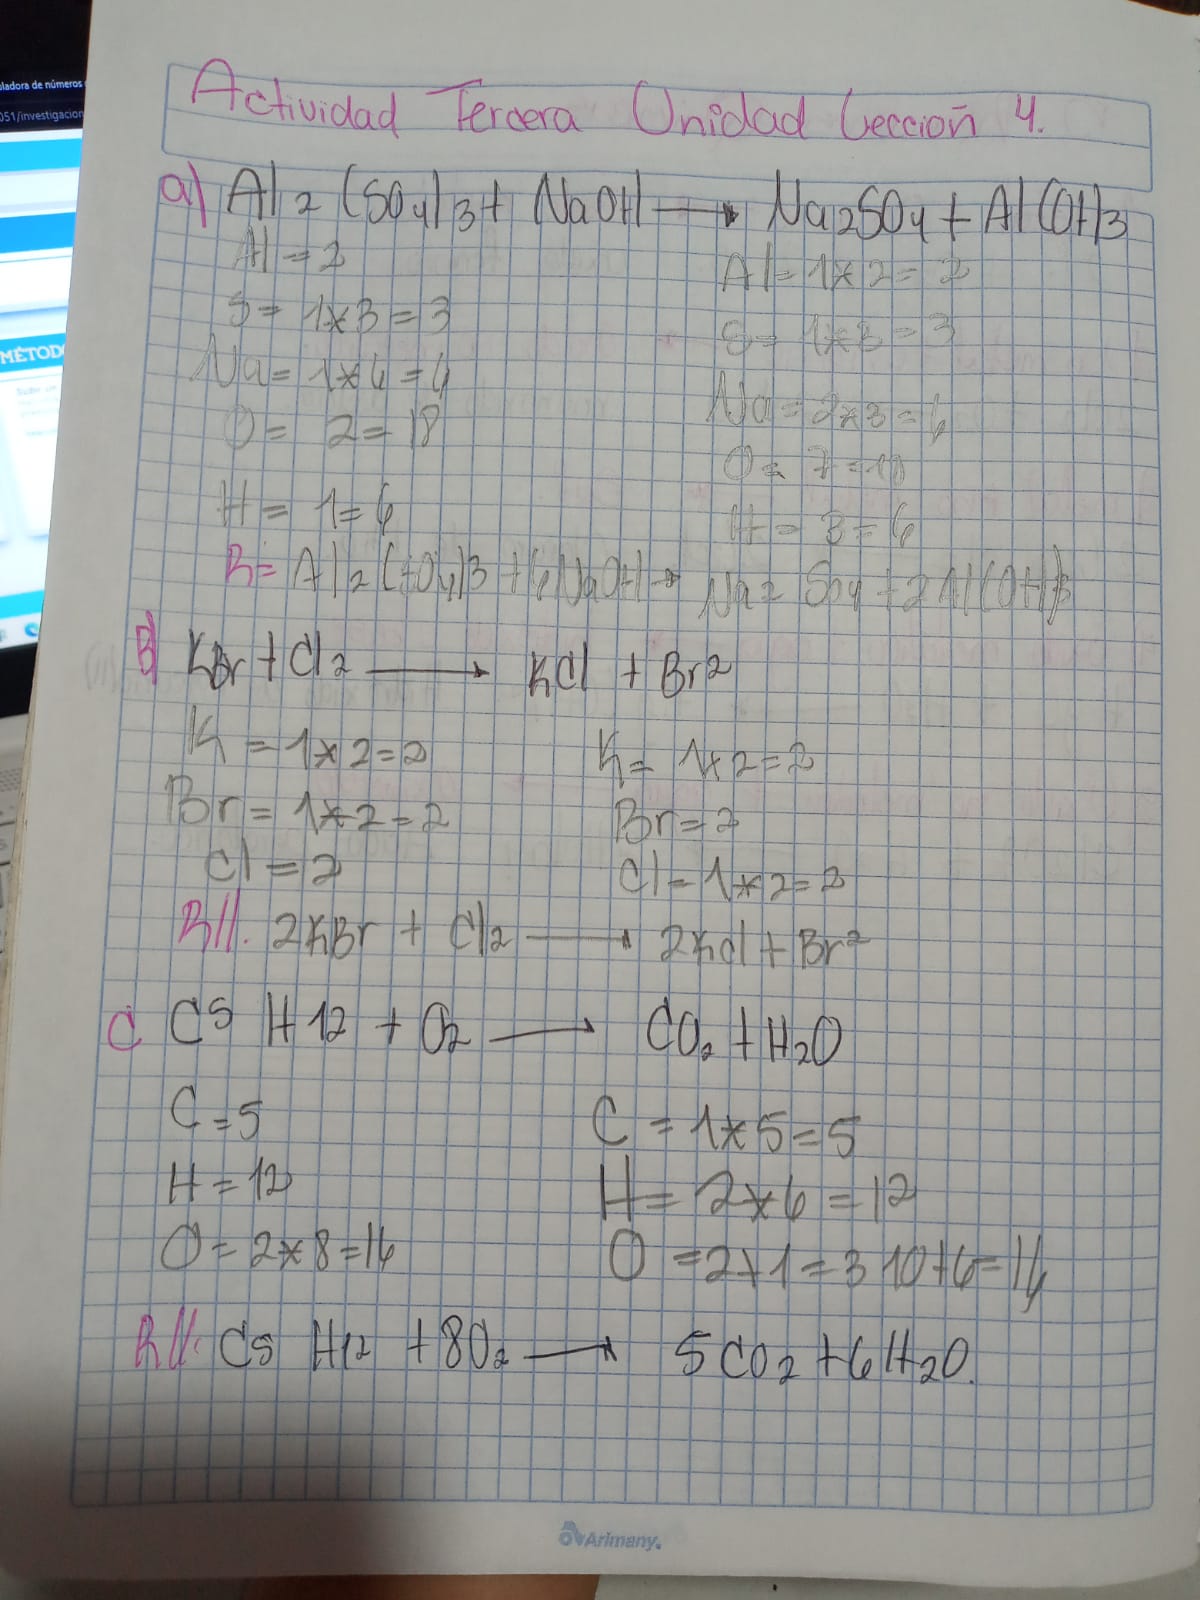 ladora de números
051/investigacion
MÉTOD
Actividad Tercera Unidad Lección 4.
a) Al2(SO4)3 + NaOH → Na2SO4 + Al(OH)3
Al = 2 Al = 1*2 = 2
S = 1*3 = 3 S = 1*3 = 3
Na = 1*6 = 6 Na = 2*3 = 6
O = 2 = 18 O = 7 = 18
H = 1 = 6 H = 3 = 6
R = Al2(SO4)3 + 6NaOH → Na2 SO4 + 2Al(OH)3
B) KBr + Cl2 → KCl + Br2
K = 1*2 = 2 K = 1*2 = 2
Br = 1*2 = 2 Br = 2
Cl = 2 Cl = 1*2 = 2
R//. 2KBr + Cl2 → 2KCl + Br2
C C5 H12 + O2 → CO2 + H2O
C = 5 C = 1*5 = 5
H = 12 H = 2*6 = 12
O = 2*8 = 16 O = 2+1 = 3 10+6 = 16
R//. C5 H12 + 8O2 → 5CO2 + 6H2O.
Arimany.